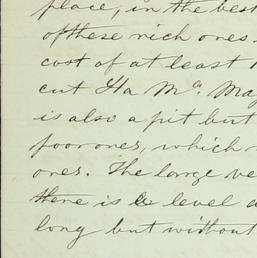 place, in the best
of these rich ones
cost of at least
cut Ha Ma. May
is also a pit but
poor ones, which
ones. The large ve
there is a level a
long but without